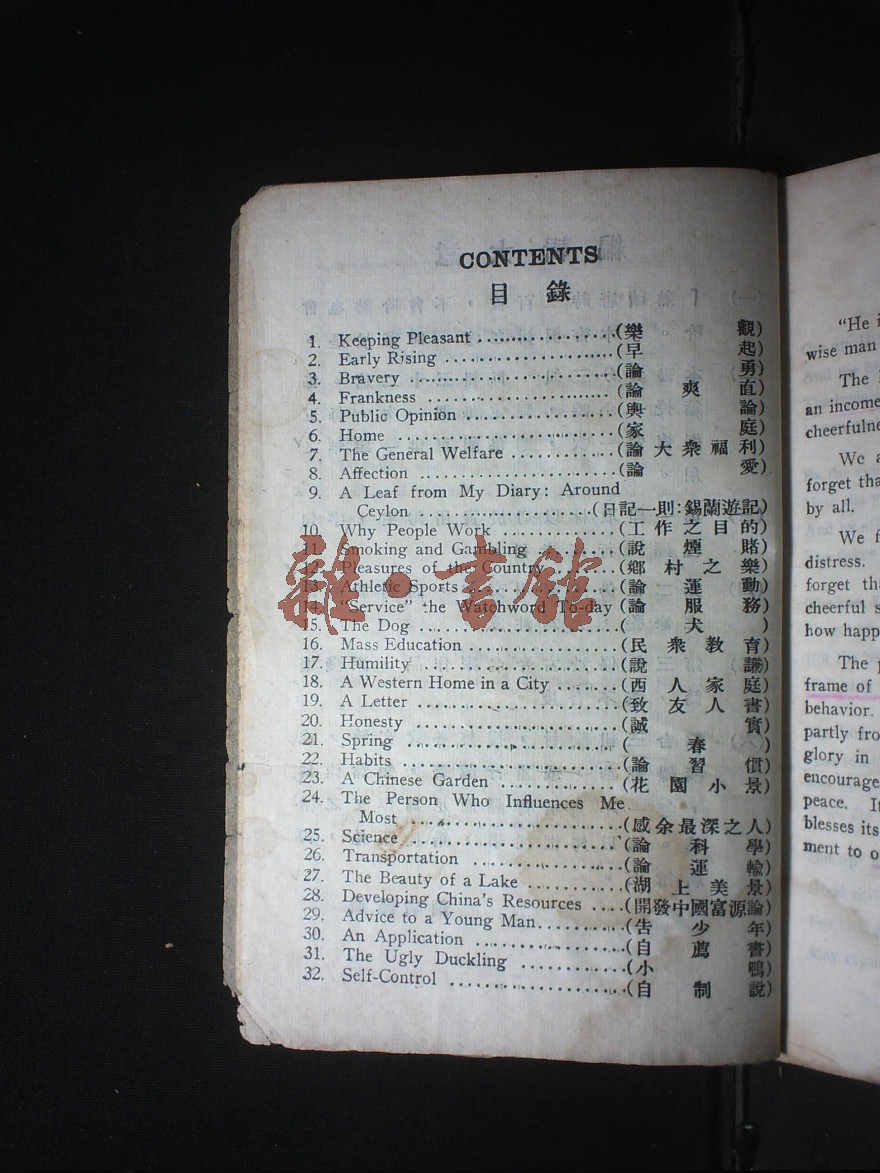 CONTENTS
目錄
1. Keeping Pleasant (樂觀)
2. Early Rising (早起)
3. Bravery (論勇)
4. Frankness (論爽直)
5. Public Opinion (輿論)
6. Home (家庭)
7. The General Welfare (論大衆福利)
8. Affection (論愛)
9. A Leaf from My Diary: Around
Ceylon (日記一則:錫蘭遊記)
10. Why People Work (工作之目的)
11. Smoking and Gambling (說煙賭)
12. Pleasures of the Country (鄉村之樂)
13. Athletic Sports (論運動)
14. "Service" the Watchword To-day (論服務)
15. The Dog (犬)
16. Mass Education (民衆教育)
17. Humility (說謙)
18. A Western Home in a City (西人家庭)
19. A Letter (致友人書)
20. Honesty (誠實)
21. Spring (春)
22. Habits (論習慣)
23. A Chinese Garden (花園小景)
24. The Person Who Influences Me
Most (感余最深之人)
25. Science (論科學)
26. Transportation (論運輸)
27. The Beauty of a Lake (湖上美景)
28. Developing China's Resources (開發中國富源論)
29. Advice to a Young Man (告少年)
30. An Application (自薦書)
31. The Ugly Duckling (小鴨)
32. Self-Control (自制說)
雜·書館
"He i
wise man
The
an income
cheerfulne
We a
forget tha
by all.
We f
distress.
forget tha
cheerful s
how happ
The p
frame of
behavior.
partly fro
glory in
encourage
peace. If
blesses its
ment to o